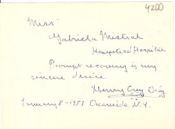 4200
Miss
Gabriela Mistral
Hempstead Hospital
Prompt recovery is my
sincere desire
January 8-1957 Oneida N.Y.